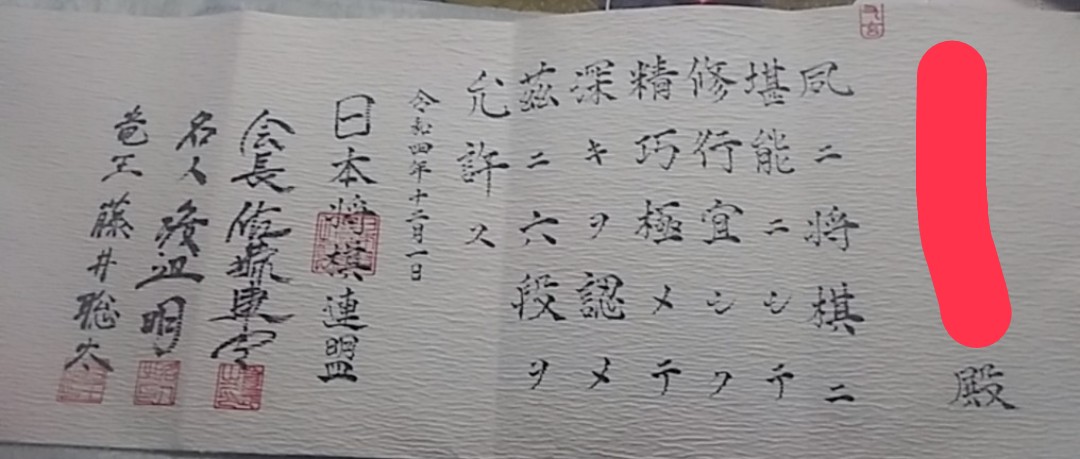 殿
夙ニ将棋ニ
堪能ニシテ
修行宜シク
精巧極メテ
深キヲ認メ
茲ニ六段ヲ
允許ス
令和四年十二月一日
日本将棋連盟
会長 佐藤康光
名人 渡辺明
竜王 藤井聡太